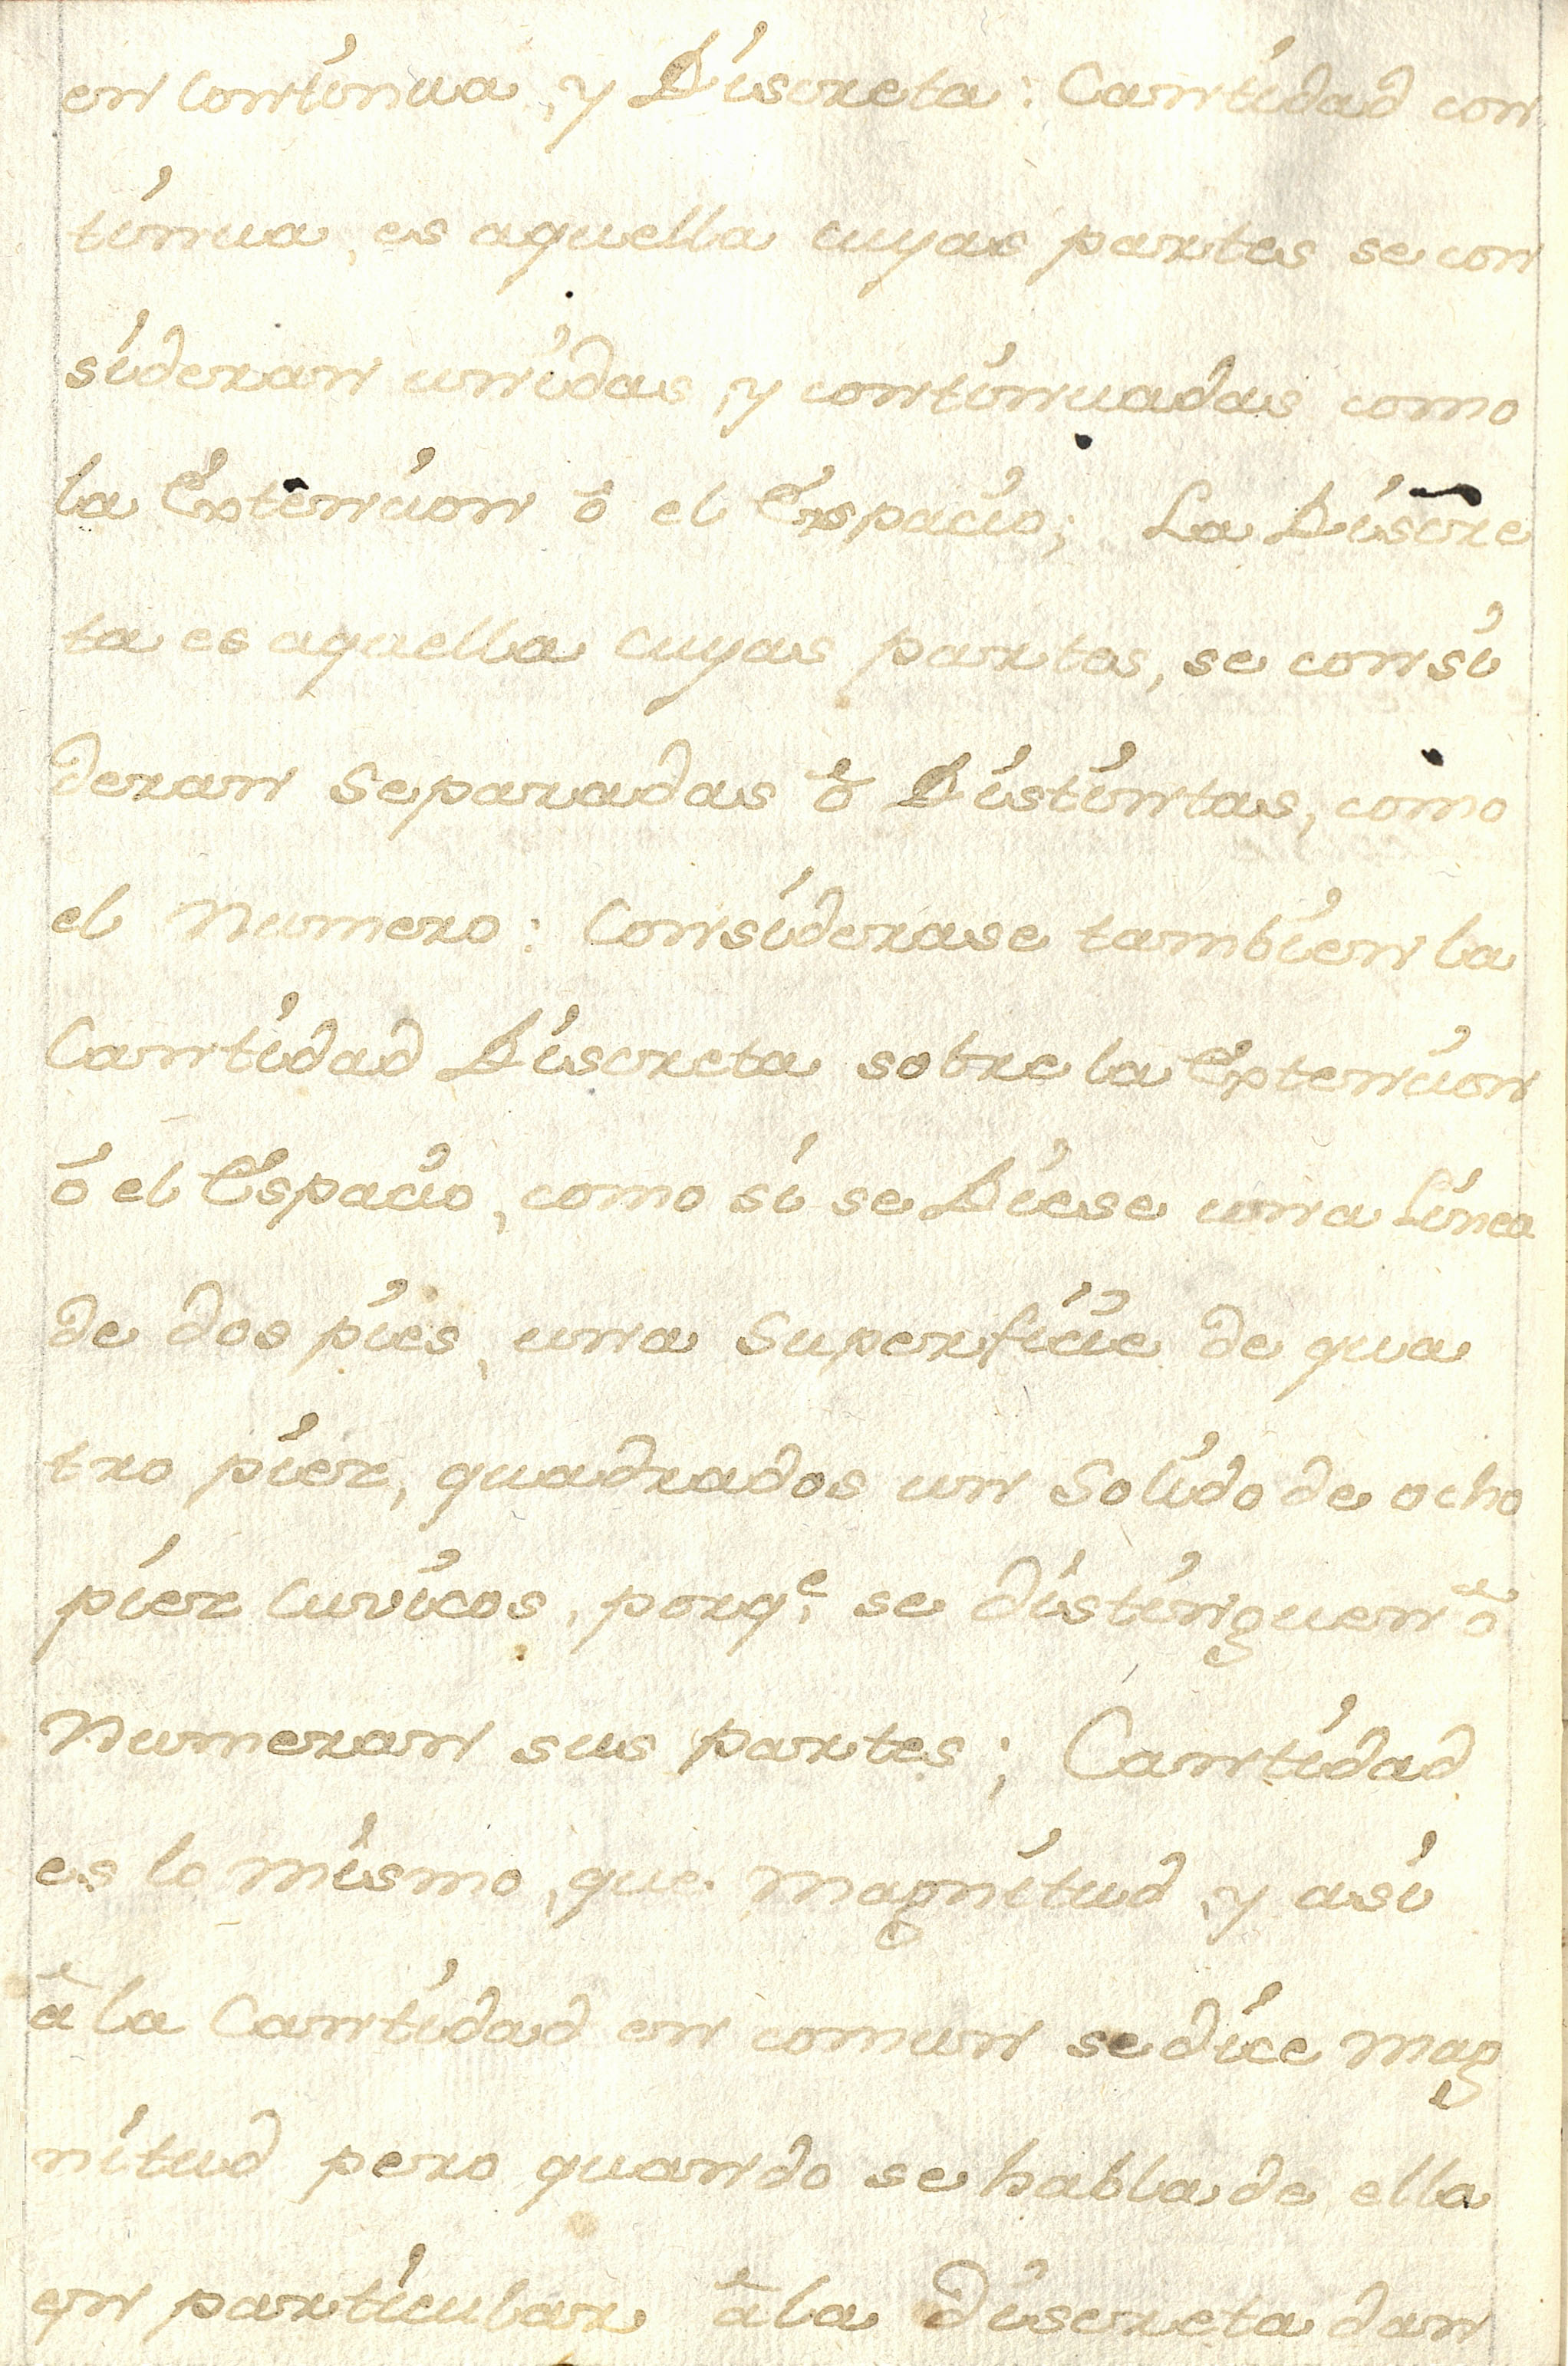 en Continua, y Discreta: Cantidad con
tinua, es aquella cuyas partes se con
sideran unidas, y continuadas como
la Extencion ô el Espacio; La Discre
ta es aquella cuyas partes, se consi
deran Separadas ô Distintas, como
el Numero: Considerase tambien la
Cantidad Discreta sobre la Extencion
ô el Espacio, como si se Diese una Linea
de dos pies, una Superficie de qua
tro pies, quadrados un Solido de ocho
pies Cuvicos, porq.e se distinguen ô
Numeran sus partes; Cantidad
es lo mismo, que Magnitud, y asi
â la Cantidad en comun se dice Mag
nitud pero quando se habla de ella
en particular â la Discreta dan